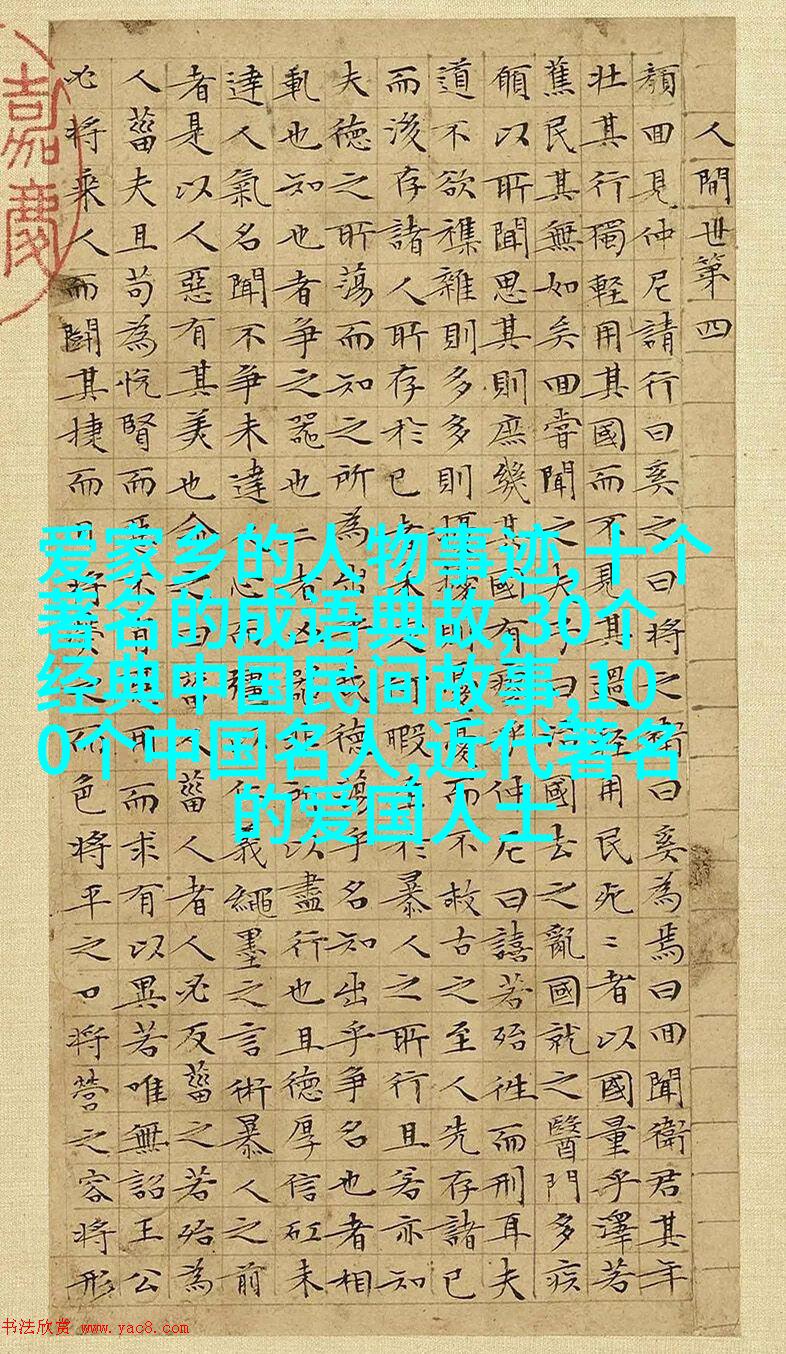 人間世第四
顏回見仲尼請行曰奚之曰將之衛曰奚為焉曰回聞衛君其年
壯其行獨輕用其國而不見其過輕用民死〻者以國量乎澤若
蕉民其無如矣回嘗聞之夫子曰治國去之亂國就之醫門多疾
願以所聞思其則庶幾其國有瘳乎仲尼曰譆若殆往而刑耳夫
道不欲襍雜則多多則擾擾則憂而不救古之至人先存諸已
而後存諸人所存於已者未暇至於暴人之所行且若亦知
夫德之所蕩而知之所為出乎哉德蕩乎名知出乎爭名也者相
軋也知也者爭之器也二者凶器非所以盡行也且德厚信矼未
達人氣名聞不爭未達人心而彊以仁義繩墨之言術暴人之前
者是以人惡有其美也命之曰菑人菑人者人必反菑之若殆為
人菑夫且苟為悅賢而惡不肖惡用而求有以異若唯無詔王公
必將乘人而鬭其捷而目將熒之而色將平之口將營之容將形
嘉慶
爱家乡的人物事迹,十个
著名的成语典故,30个
经典中国民间故事,10
0个中国名人,近代著名
的爱国人士
书法欣赏 www.yac8.com